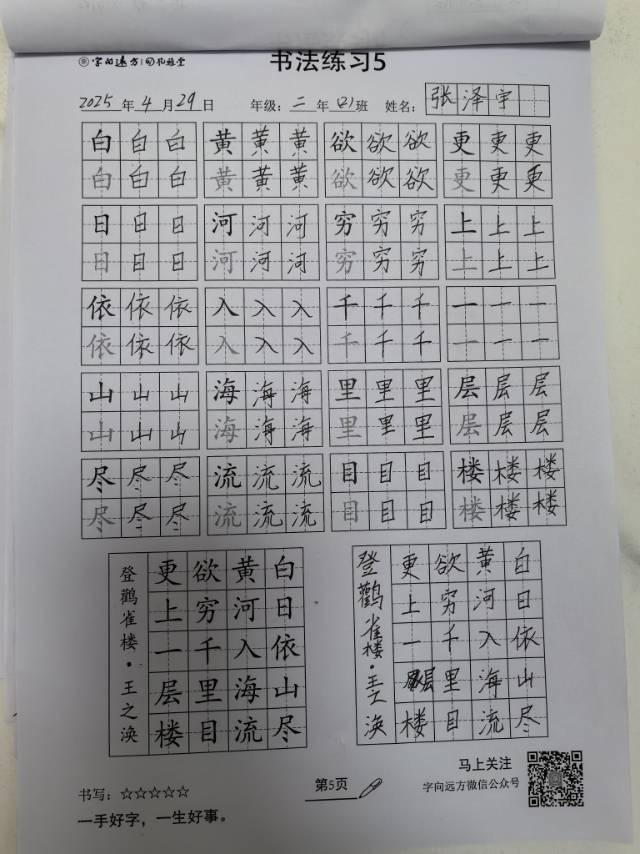 字向远方
书法练习5
2025年4月29日 年级:二年(2)班 姓名:张泽宇
白白白 黄黄黄 欲欲欲 更更更
白白白 黄黄黄 欲欲欲 更更更
日日日 河河河 穷穷穷 上上上
日日日 河河河 穷穷穷 上上上
依依依 入入入 千千千 一一一
依依依 入入入 千千千 一一一
山山山 海海海 里里里 层层层
山山山 海海海 里里里 层层层
尽尽尽 流流流 目目目 楼楼楼
尽尽尽 流流流 目目目 楼楼楼
白日依山尽
黄河入海流
欲穷千里目
更上一层楼
登鹳雀楼·王之涣
白日依山尽
黄河入海流
欲穷千里目
更上一层楼
登鹳雀楼·王之涣
书写:☆☆☆☆☆
一手好字,一生好事。
第5页
马上关注
字向远方微信公众号